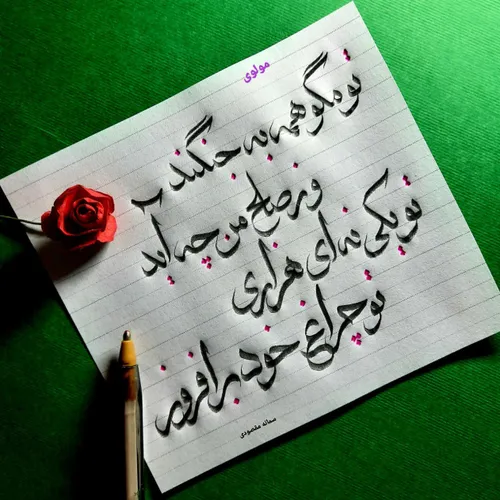 مولوی
تو مگو همه به جنگند
و ز صلح من چه آید
تو یکی نه ای هزاری
تو چراغ خود برافروز
سمانه مقصودی